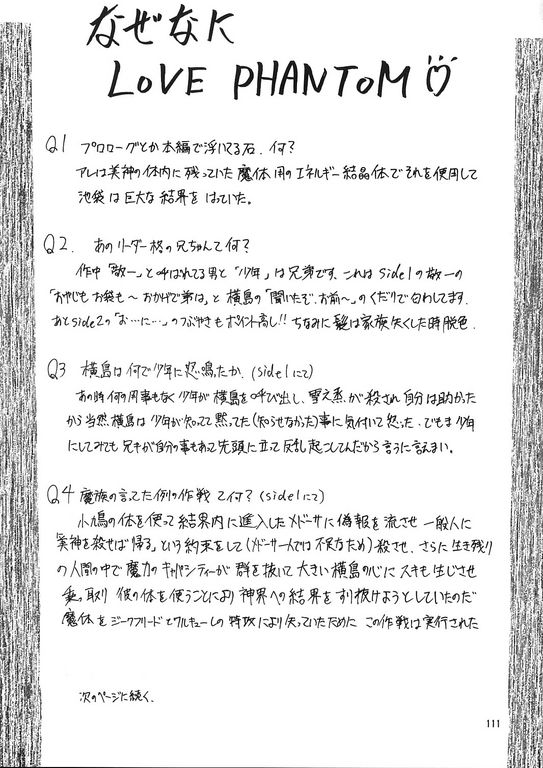 なぜなに
LOVE PHANTOM
Q1 プロローグとか本編で浮いてる石、何?
アレは美神の体内に残っていた魔体用のエネルギー結晶体でそれを使用して
池袋は巨大な結界をはっていた。
Q2. あのリーダー格の兄ちゃんて何?
作中「敬一」と呼ばれてる男と「少年」は兄弟です、これはside1の敬一の
「おやじもお袋も〜おかげで弟は」と横島の「聞いたぞ、お前〜」のくだりで匂わしてます。
あとside2の「お…に…」のつぶやきもポイント高し!! ちなみに髪は家族失くした時脱色.
Q3 横島は何で少年に怒鳴ったか.(side1にて)
あの時何の用事もなく少年が横島を呼び出し、雪之丞が殺され自分は助かった
から当然横島は少年が知ってて黙ってた(知らせなかった)事に気付いて怒った.でもま少年
にしてみても兄キが自分の事もあって先頭に立って反乱起こしてんだから言うに言えまい。
Q4 魔族の言ってた例の作戦て何?(side1にて)
小鳥の体を使って結界内に進入したメドーサに偽報を流させ一般人に
「美神を殺せば帰る」という約束をして(メドーサ一人では不足なため)殺させ、さらに生き残り
の人間の中で魔力のキャパシティーが群を抜いて大きい横島の心にスキも生じさせ
乗っ取り 彼の体を使うことにより神界への結界をすり抜けようとしていたのだ
魔体をジークフリードとワルキューレの特攻により失っていたために この作戦は実行された
次のページに続く.
111